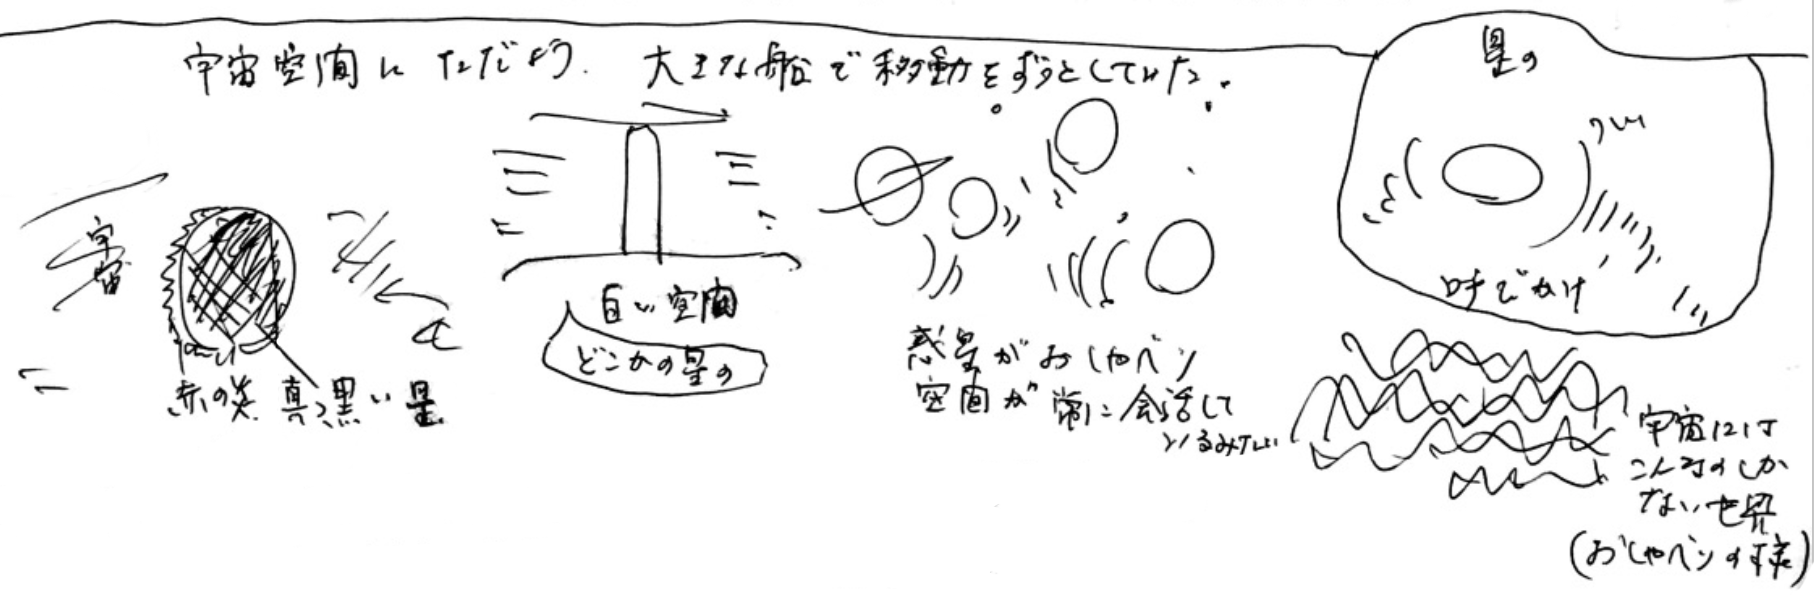 宇宙空間にただよう. 大きな船で移動をずっとしていた.
宇宙
赤の炎 真っ黒い星
白い空間
どこかの星の
惑星がおしゃべり
空間が常に会話して
いるみたい
星の
呼びかけ
宇宙には
こんなのしか
ない世界
(おしゃべりの様)